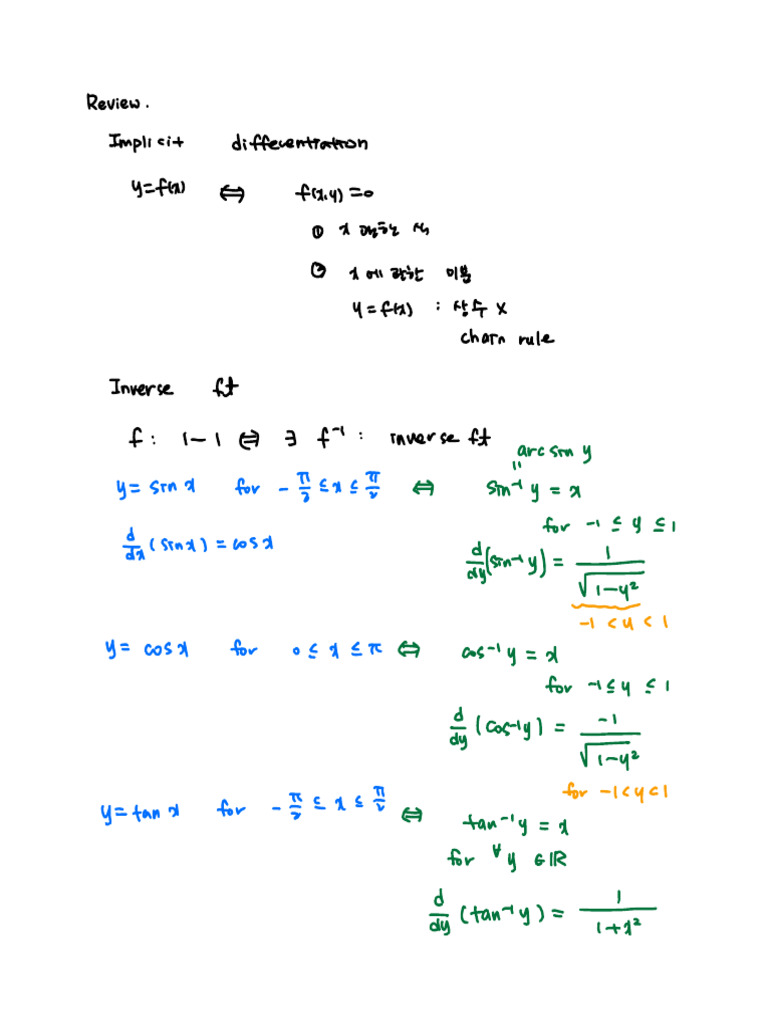 Review.
Implicit differentiation
y=f(x) ⇔ f(x,y)=0
① x
② x에 관한 미분
y=f(x) : 상수 x
chain rule
Inverse ft
f: 1-1 ⇔ ∃ f⁻¹ : inverse ft
arcsin y
॥
y= sin x for -π/2 ≤ x ≤ π/2 ⇔ sin⁻¹ y = x
for -1 ≤ y ≤ 1
d/dx (sin x) = cos x
d/dy (sin⁻¹ y) = 1/√(1-y²)
-1 < y < 1
y= cos x for 0 ≤ x ≤ π ⇔ cos⁻¹ y = x
for -1 ≤ y ≤ 1
d/dy (cos⁻¹ y) = -1/√(1-y²)
for -1 < y < 1
y= tan x for -π/2 ≤ x ≤ π/2 ⇔ tan⁻¹ y = x
for ∀y ∈ ℝ
d/dy (tan⁻¹ y) = 1/(1+x²)